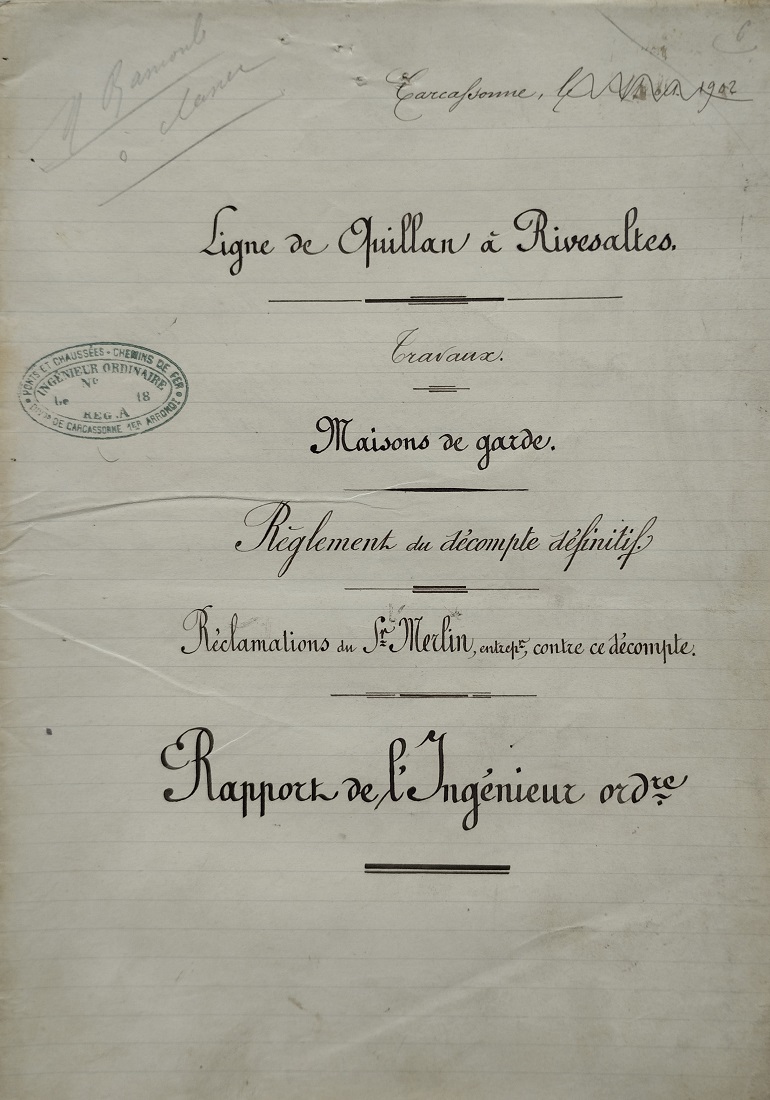 à classer
Carcassonne, le 1902
Ligne de Quillan à Rivesaltes.
Travaux.
PONTS ET CHAUSSÉES - CHEMINS DE FER
INGÉNIEUR ORDINAIRE
N°
Le 18
REG. A
DE CARCASSONNE 1ER ARRONDT
Maisons de garde.
Règlement du décompte définitif.
Réclamations du Sr Merlin, entrepr, contre ce décompte.
Rapport de l'Ingénieur ordre